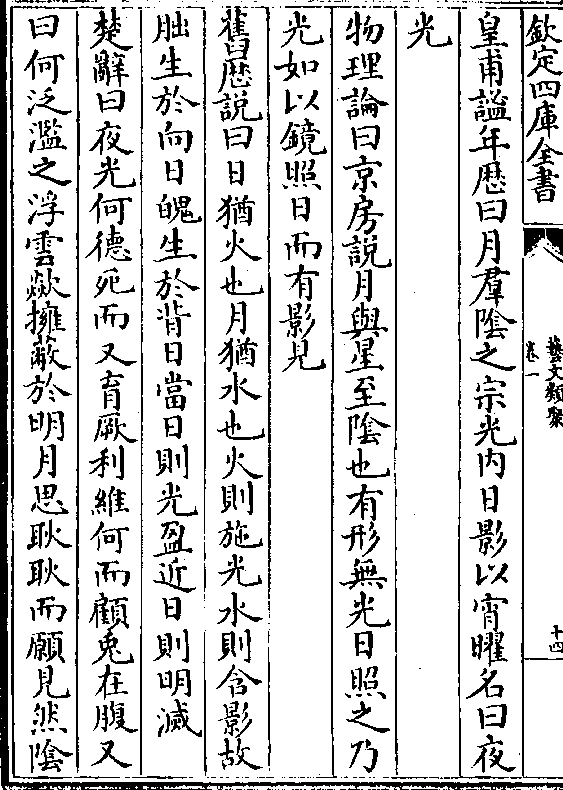 欽定四庫全書
藝文類聚
卷一
十四
皇甫謐年歴曰月羣隂之宗光内日影以宵曜名曰夜
光
物理論曰京房説月與星至隂也有形無光日照之乃
光如以鏡照日而有影見
舊歴説曰日猶火也月猶水也火則施光水則含影故
朏生於向日魄生於背日當日則光盈近日則明滅
楚辭曰夜光何德死而又育厥利維何而顧兎在腹又
曰何泛濫之浮雲歘擁蔽於明月思耿耿而願見然隂